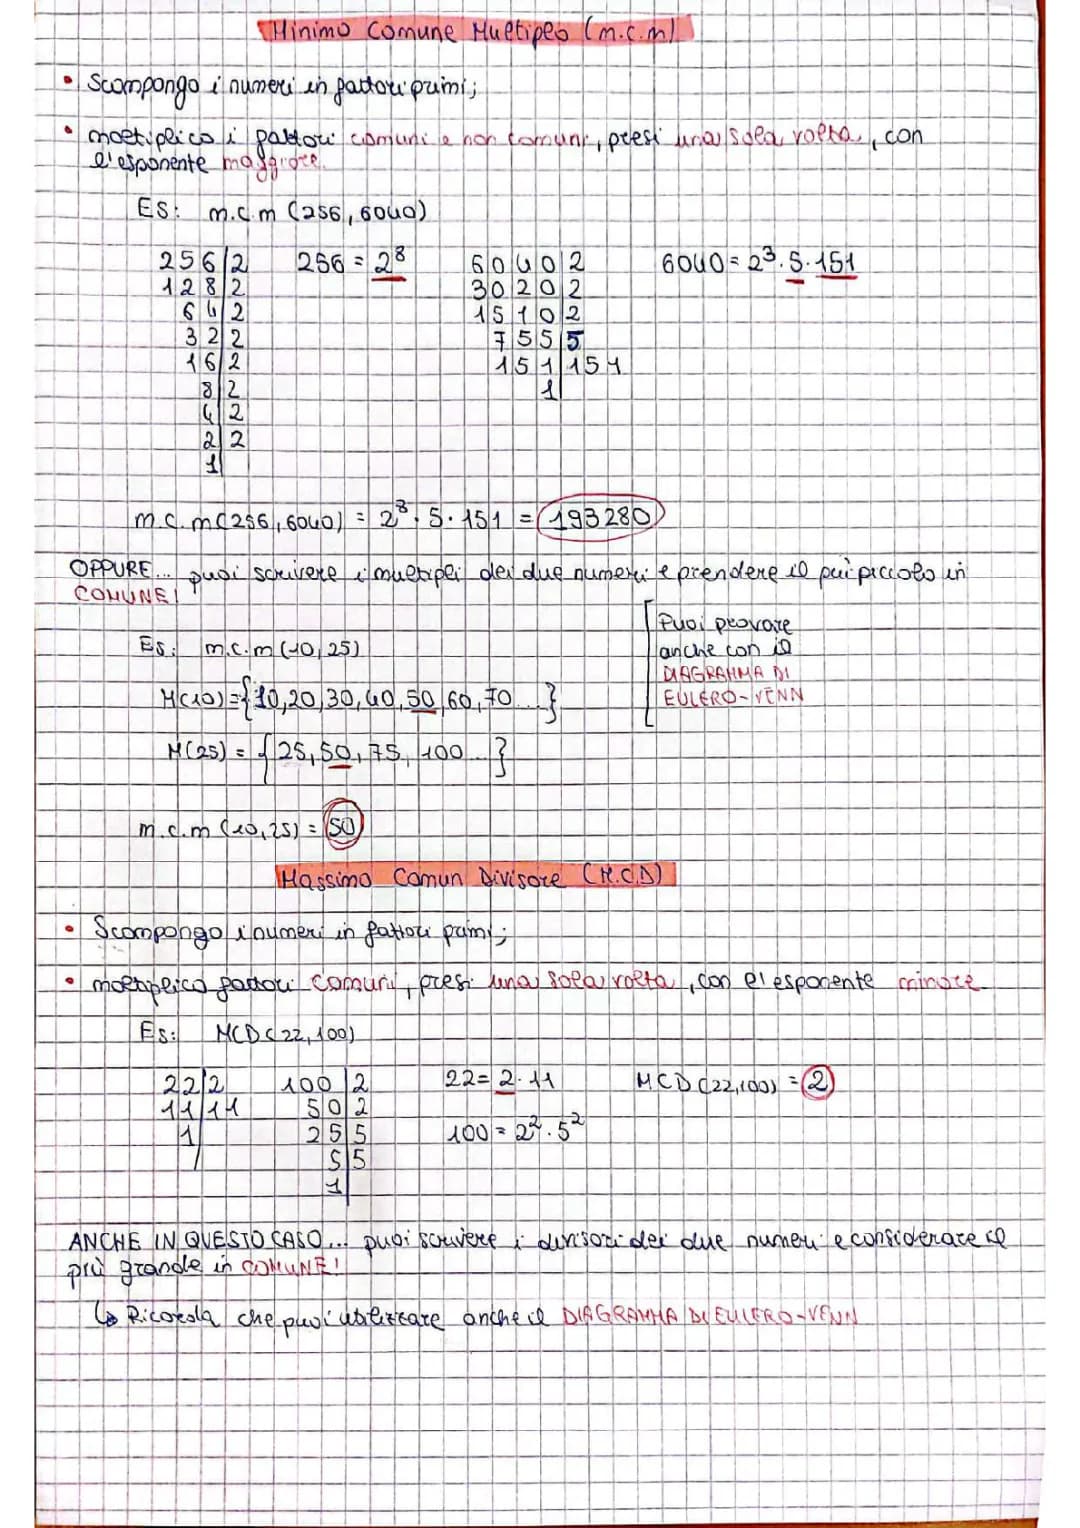 Minimo Comune Multiplo (m.c.m)
• Scompongo i numeri in fattori primi;
• moltiplico i fattori comuni e non comuni, presi una sola volta, con
l'esponente maggiore.
ES: m.c.m (256, 6040)
256|2 256 = 2⁸ 6040|2 6040 = 2³·5·151
128|2 3020|2
64|2 1510|2
32|2 755|5
16|2 151|151
8|2 1|
4|2
2|2
1|
m.c.m (256, 6040) = 2⁸·5·151 = 193280
OPPURE... puoi scrivere i multipli dei due numeri e prendere il più piccolo in
COMUNE!
Puoi provare
anche con il
DIAGRAMMA DI
EULERO-VENN
Es: m.c.m (10, 25)
M(10) = {10, 20, 30, 40, 50, 60, 70...}
M(25) = {25, 50, 75, 100...}
m.c.m (10, 25) = 50
Massimo Comun Divisore (M.C.D)
• Scompongo i numeri in fattori primi;
• moltiplico fattori comuni, presi una sola volta, con l'esponente minore
Es: MCD (22, 100)
22|2 100|2 22 = 2·11 MCD (22, 100) = 2
11|11 50|2
1| 25|5 100 = 2²·5²
5|5
1|
ANCHE IN QUESTO CASO... puoi scrivere i divisori dei due numeri e considerare il
più grande in COMUNE!
↳ Ricorda che puoi utilizzare anche il DIAGRAMMA DI EULERO-VENN